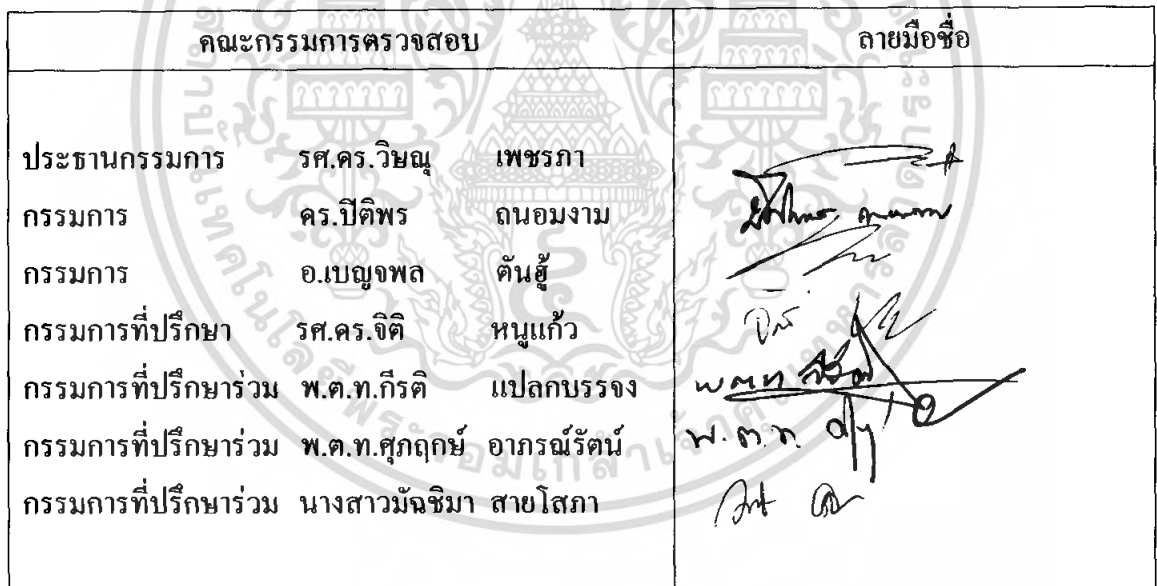 คณะกรรมการตรวจสอบ ลายมือชื่อ
ประธานกรรมการ รศ.ดร.วิษณุ เพชรภา
กรรมการ ดร.ปีติพร ถนอมงาม
กรรมการ อ.เบญจพล ตันฮู้
กรรมการที่ปรึกษา รศ.ดร.จิติ หนูแก้ว
กรรมการที่ปรึกษาร่วม พ.ต.ท.กีรติ แปลกบรรจง
กรรมการที่ปรึกษาร่วม พ.ต.ท.ศุภฤกษ์ อาภรณ์รัตน์
กรรมการที่ปรึกษาร่วม นางสาวมัฉชิมา สายโสภา